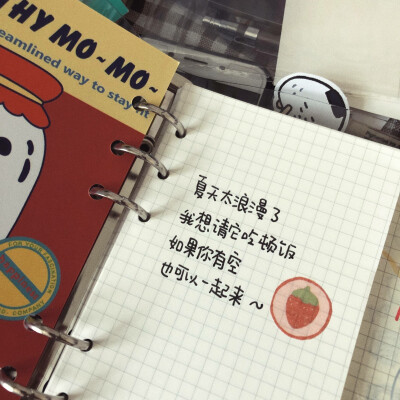 THY MO~MO~
eamlined way to stay fit
夏天太浪漫了
我想请它吃顿饭
如果你有空
也可以一起来～